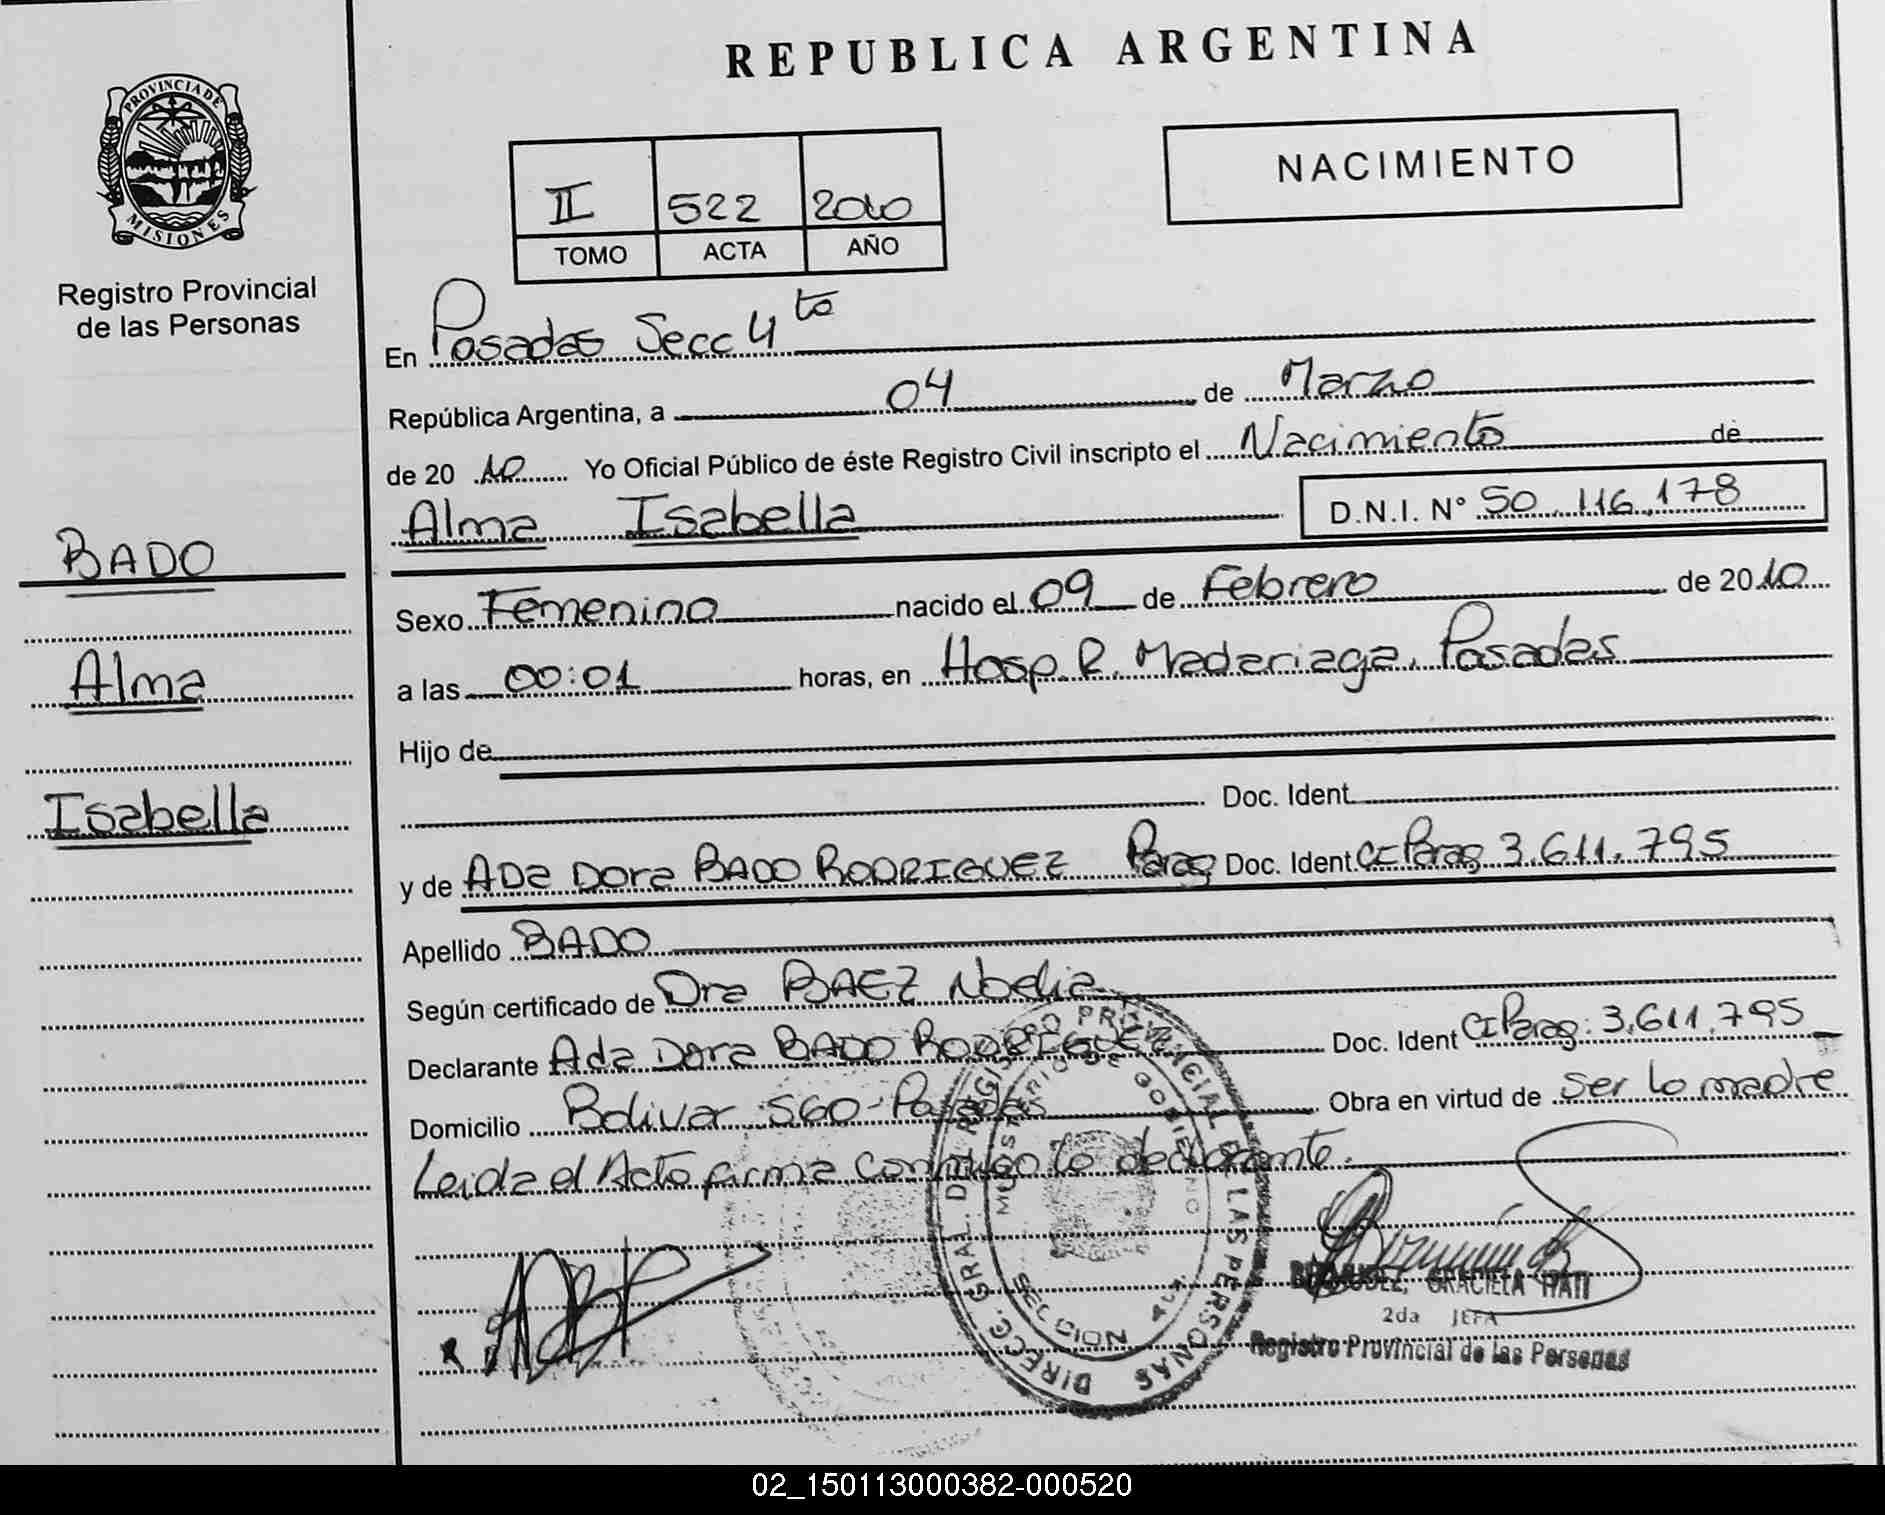 REPUBLICA ARGENTINA
PROVINCIA DE
MISIONES
Registro Provincial
de las Personas
II 522 2010
TOMO ACTA AÑO
NACIMIENTO
En Posadas Secc 4to
República Argentina, a 04 de Marzo
de 2010 Yo Oficial Público de éste Registro Civil inscripto el Nacimiento de
Alma Isabella D.N.I. N° 50.116.178
BADO
Alma
Isabella
Sexo Femenino nacido el 09 de Febrero de 2010
a las 00:01 horas, en Hosp. R. Madariaga. Posadas
Hijo de
Doc. Ident.
y de ADa DOra BADO RODRIGUEZ Parag Doc. Ident CI Parag 3.611.795
Apellido BADO
Según certificado de Dra BAEZ Noelia
Declarante Ada Dora BADO RODRIGUEZ Doc. Ident CI Parag: 3.611.795
Domicilio Bolivar 560-Posadas Obra en virtud de ser la madre
Leida el Acta firma conmigo la declarante.
DIRECC. GRAL. DEL REGISTRO PROVINCIAL DE LAS PERSONAS
MINISTERIO DE GOBIERNO
SECCION 4ta
BERMUDEZ, GRACIELA ITATI
2da JEFA
Registro Provincial de las Personas
02_150113000382-000520